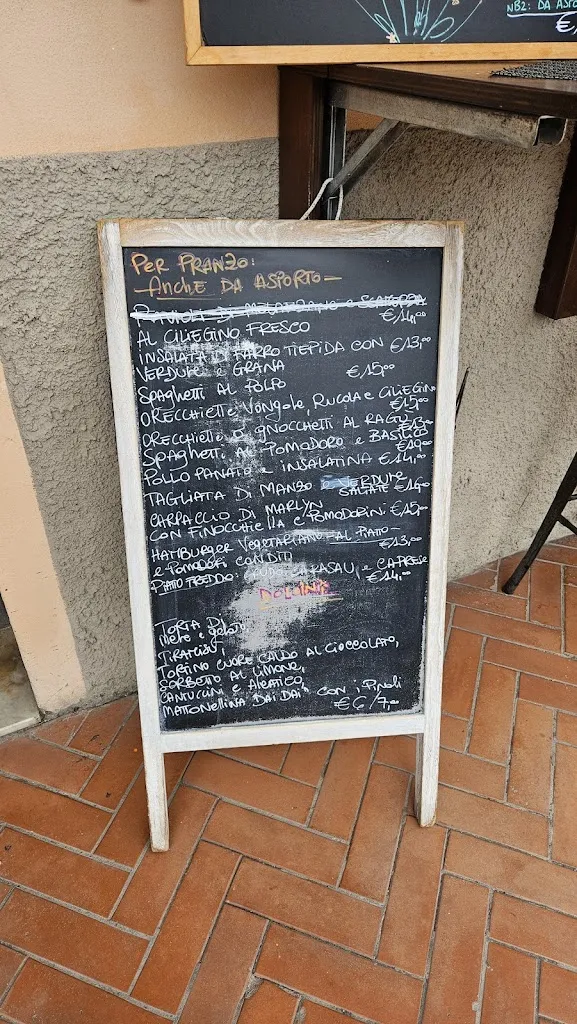 NB2: DA ASPO
€
PER PRANZO:
- ANCHE DA ASPORTO -
AL CILIEGINO FRESCO €14,00
INSALATA DI FARRO TIEPIDA CON €13,00
VERDURE E GRANA
SPAGHETTI AL POLPO €15,00
ORECCHIETTE VONGOLE, RUCOLA E CILIEGINO €15,00
ORECCHIETTE O GNOCCHETTI AL RAGÙ
SPAGHETTI AL POMODORO E BASILICO €10,00
POLLO PANATO E INSALATINA €14,00
TAGLIATA DI MANZO E VERDURE
SALTATE
CARPACCIO DI MARLYN
CON FINOCCHIELLA E POMODORINI €15,00
HAMBURGER VEGETARIANO - AL PIATTO -
E POMODORI CONDITI €13,00
PIATTO FREDDO: CARASAU E CAPRESE
€14,00
TORTA DI
MELE E GELATO
TIRAMISU
TORTINO CUORE CALDO AL CIOCCOLATO,
SORBETTO AL LIMONE,
CANTUCCINI E ALEATICO,
MATTONELLINA "DAI DAI" CON I PINOLI
€6/7,00